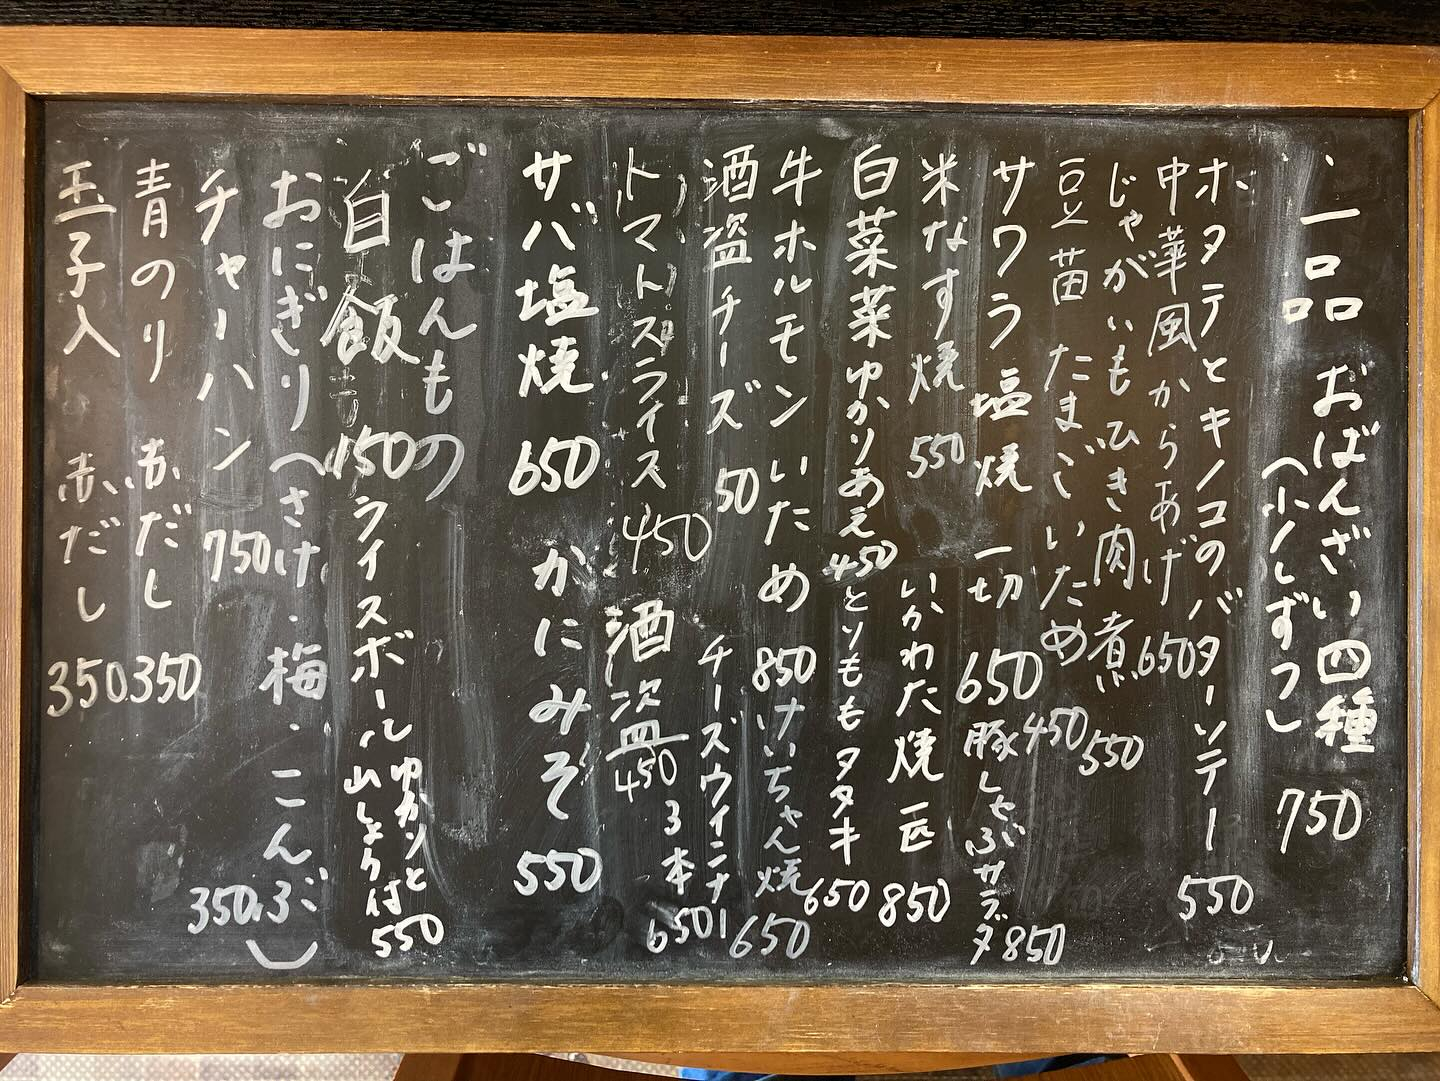 一品 おばんざい四種 750
(少しずつ)
ホタテとキノコのバターソテー 550
中華風からあげ 650
じゃがいもひき肉煮 550
豆苗たまごいため 450
サワラ塩焼 一切 650
豚しゃぶサラダ 850
米なす焼 550
いかわた焼 一匹 850
白菜菜ゆかりあえ 450
とりももタタキ 650
牛ホルモンいため 850
けいちゃん焼 650
酒盗チーズ 50
チーズウインナー
3本 650
トマトスライス 450
酒盗 450
サバ塩焼 650
かにみそ 550
ごはんもの
白飯 150
ライスボール ゆかりと
山しょう付 550
おにぎり(さけ・梅・こんぶ) 350
チャーハン 750
青のり 赤だし 350
玉子入 赤だし 350